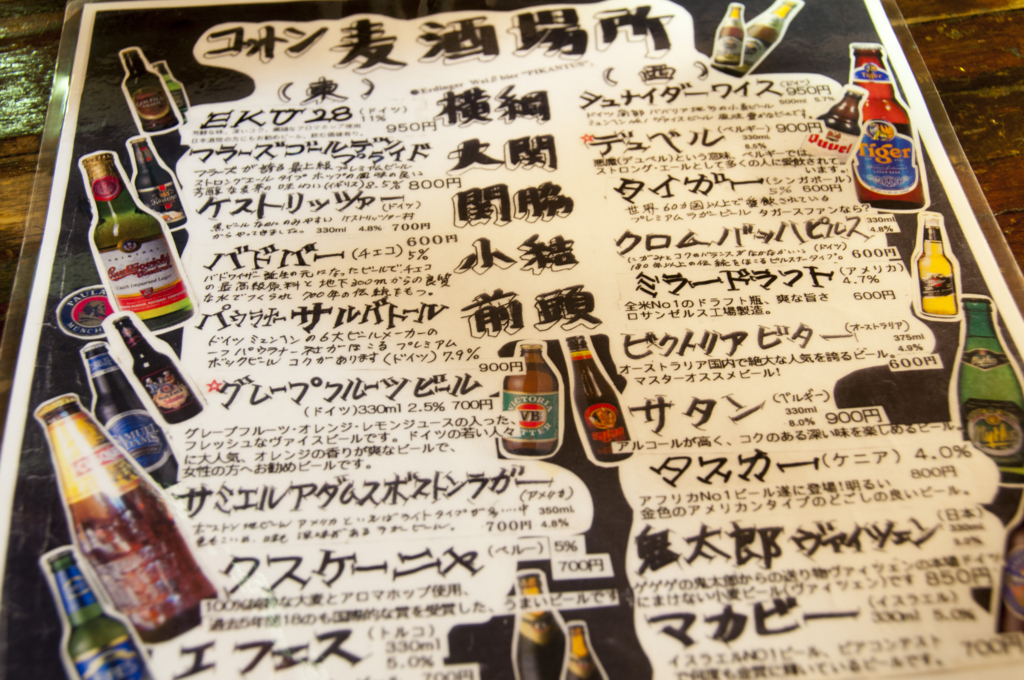 コットン 麦酒場所
(東)
Erdinger Weiß bier "PIKANTUS"
(西)
横綱
大関
関脇
小結
前頭
EKU 28 (ドイツ) 11%
950円
フラーズゴールデンプライド
フラーズが誇る最上級プレミアムビール
ストロングエールタイプ ホップの風味の
(イギリス) 8.5% 800円
ケストリッツァ (ドイツ)
330ml 4.8% 700円
600円
バドバー (チェコ) 5%
バドワイザー誕生の元になったビールでチェコ
の最高級原料と地下300mからの良質
な水でつくられ 700年の伝統をもつ。
パウラナー サルバトール
ドイツ ミュンヘンの6大ビールメーカーの
一つ パウラナー社がほこる プレミアム
ボックビール コクがあります (ドイツ) 7.9%
900円
☆グレープフルーツビール
(ドイツ) 330ml 2.5% 700円
グレープフルーツ・オレンジ・レモンジュースの入った、
フレッシュなヴァイスビールです。ドイツの若い人々
に大人気、オレンジの香りが爽なビールで、
女性の方へお勧めビールです。
サミエルアダムスボストンラガー
(アメリカ)
350ml
700円 4.8%
クスケーニャ (ペルー) 5%
700円
100%純粋な大麦とアロマホップ使用、
過去5年間18のも国際的な賞を受賞した、うまいビールです
エフェス (トルコ)
330ml
5.0%
700円
シュナイダーワイス (ドイツ)
950円
500ml 5.7%
☆デュベル (ベルギー) 900円
330ml
8.5%
悪魔(デュベル)という意味。ベルギーでは、
ストロング・エールとして多くの人に愛飲されて
います。
タイガー (シンガポール)
5% 600円
世界60カ国以上で愛飲されている
プレミアムラガービール タガースファンなら?
クロムバッハピルス
330ml
4.8%
(ドイツ)
600円
ミラードラフト (アメリカ)
4.7%
全米No1のドラフト瓶、爽な旨さ
ロサンゼルス工場製造。
600円
ビクトリア ビター (オーストラリア)
375ml
4.9%
オーストラリア国内で絶大な人気を誇るビール。
マスターオススメビール!
600円
サタン (ベルギー)
330ml
8.0% 900円
アルコールが高く、コクのある深い味を楽しめるビール
タスカー (ケニア) 4.0%
800円
アフリカNo1ビール遂に登場!明るい
金色のアメリカンタイプのどごしの良いビール。
鬼太郎 ヴァイツェン
(日本)
330ml
5.0%
ゲゲゲの鬼太郎からの送り物ヴァイツェンの本場ドイツ
にまけない小麦ビール(ヴァイツェン)です 850円
マカビー (イスラエル)
330ml 5.0%
イスラエルNO1ビール、ビアコンテスト
で何度も金賞に輝いているビールです。
700円
Tiger
Tiger
Duvel
PAULANER
MÜNCHEN
VICTORIA
VB
BITTER